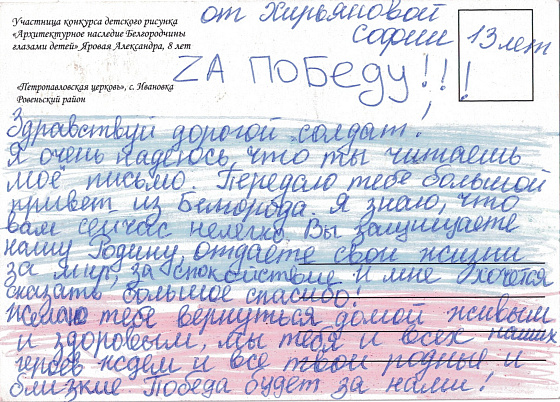 Участница конкурса детского рисунка
«Архитектурное наследие Белгородчины
глазами детей» Яровая Александра, 8 лет
«Петропавловская церковь», с. Ивановка
Ровеньский район
от Хирьяновой
Софии 13 лет
ZА ПОбЕДУ!!!
Здравствуй дорогой солдат!
Я очень надеюсь, что ты читаешь
моё письмо. Передаю тебе большой
привет из Белгорода. Я знаю, что
вам сейчас нелегко. Вы защищаете
нашу Родину, отдаёте свои жизни
за мир, за спокойствие. И мне хочется
сказать большое спасибо!
Желаю тебе вернуться домой живым
и здоровым, мы тебя и всех наших
героев ждем и все твои родные и
близкие. Победа будет за нами!